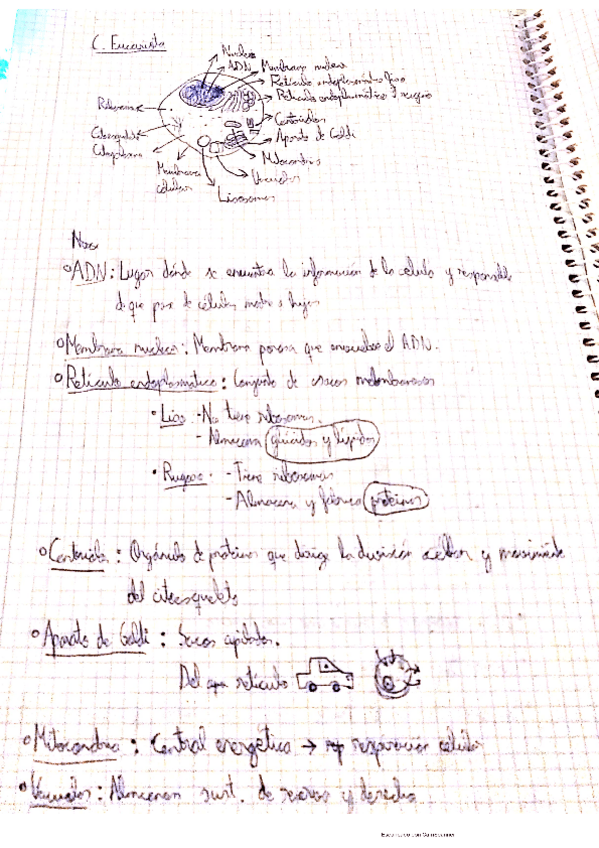 C. Eucariota
Núcleo
ADN
Membrana nuclear
Retículo endoplasmático liso
Retículo endoplasmático rugoso
Ribosomas
Centriolos
Aparato de Goldi
Citoesqueleto
Citoplasma
Mitocondrias
Membrana
celular
Vacuolas
Lisosomas
ADN: Lugar dónde se encuentra la información de la celula y responsable
de que pase de células madre a hijas
Membrana nuclear: Membrana porosa que envuelve el ADN.
Retículo endoplasmático: Conjunto de sacos membranosos
Liso - No tiene ribosomas.
- Almacena glúcidos y lípidos
Rugoso: - Tiene ribosomas
- Almacena y fabrica proteinas
Centriolo: Orgánulo de proteinas que dirige la división celular y movimiento
del citoesqueleto
Aparato de Goldi: Sacos apilados.
Del retículo
Mitocondria: Central energética → respiración celular
Vacuolas: Almacenan sust. de reserva y desecho
Escaneado con CamScanner